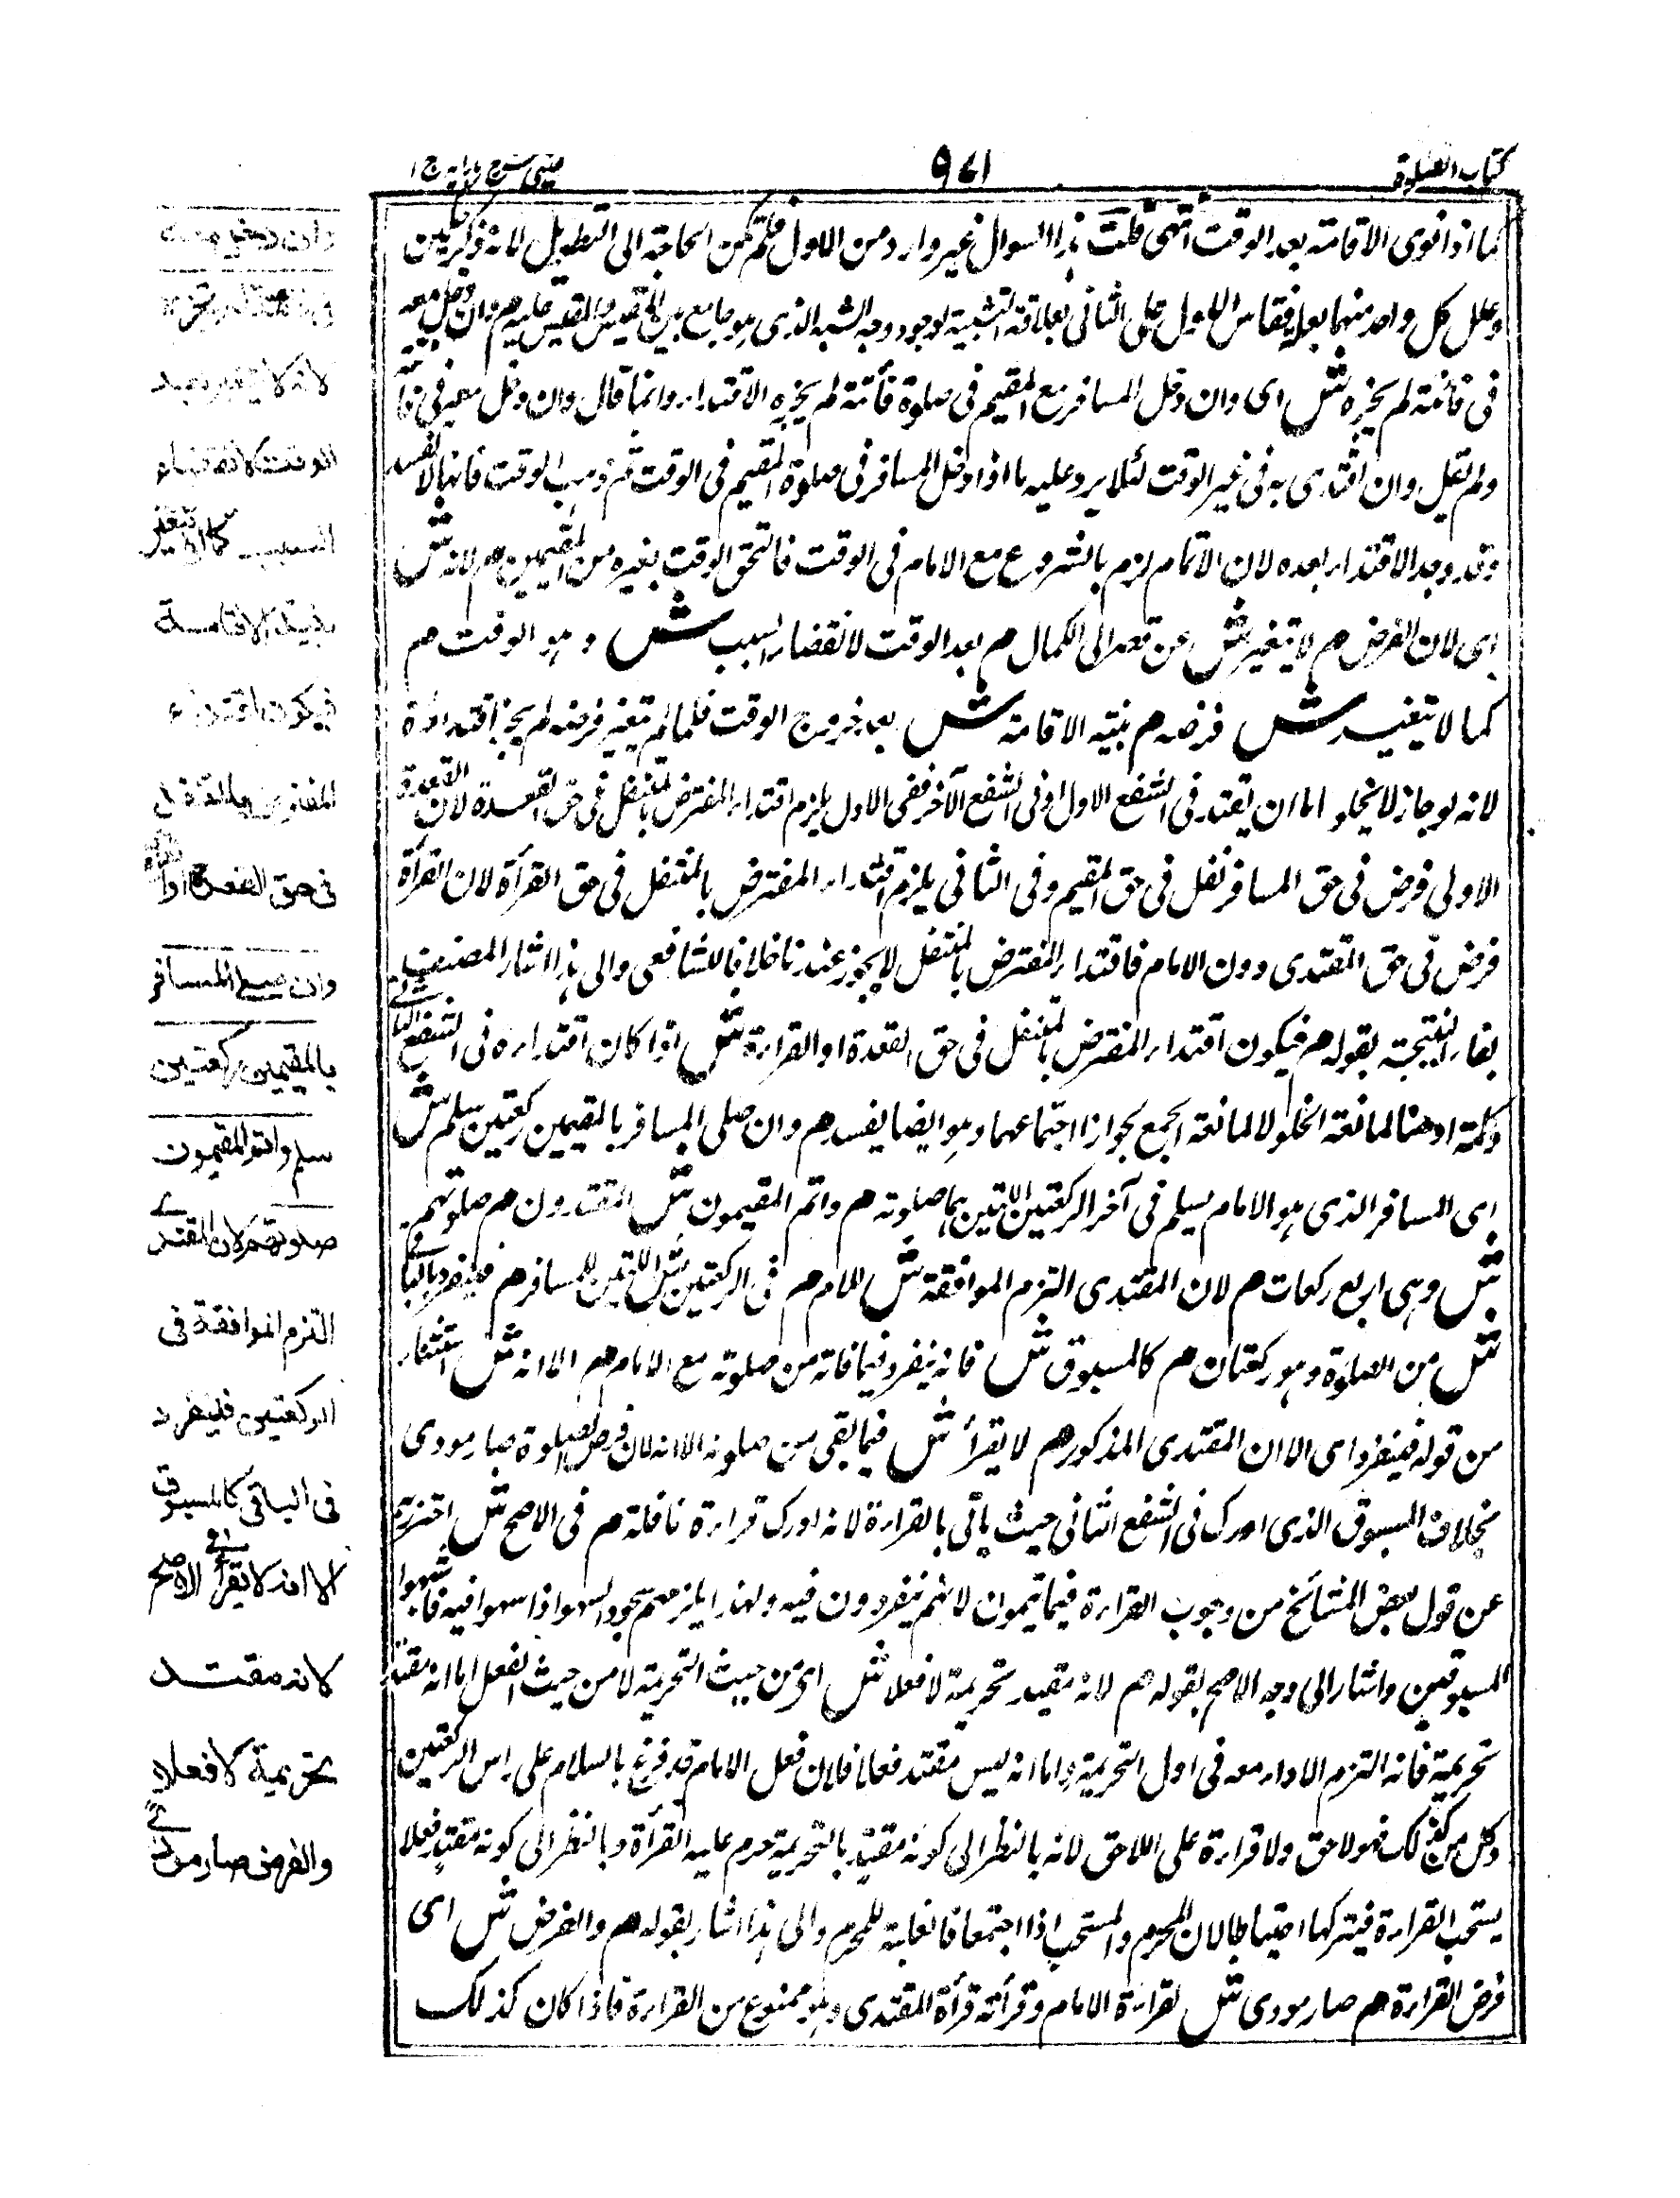 كتاب الصلوة
٩٧١
عينى شرح هدايه ج ١
كما اذا نوى الاقامة بعد الوقت انتهى قلت هذا السوال غير وارد من الاول فلم تكن الحاجة الى التطويل لانه ذكر
وعلل كل واحد منهما بعلة فقاس الاول على الثانى بعلاقة التشبيه لوجود وجه الشبه الذى هو جامع بين المقيس والمقيس عليه م وان دخل معه
فى فائتة لم يجزه ش اى وان دخل المسافر مع المقيم فى صلوة فائتة لم يجزه الاقتداء وانما قال وان دخل معه فى فائتة
ولم يقل وان اقتدى به فى غير الوقت لئلا يرد عليه ما اذا دخل المسافر فى صلوة المقيم فى الوقت ثم ذهب الوقت فانها لا تفسد
وقد وجد الاقتداء بعده لان الاتمام لزم بالشروع مع الامام فى الوقت فالتحق الوقت بغيره من المقيمين م لانه ش
اى لان الفرض م لا يتغير ش عن قعد الى الكمال م بعد الوقت لانقضاء السبب ش و هو الوقت م
كما لا يتغير ش فرضه م بنية الاقامة ش بعد خروج الوقت فلما لم يتغير فرضه لم يجز اقتداؤه
لانه لو جاز لا يخلو اما ان يقتدى فى الشفع الاول او فى الشفع الآخر ففى الاول يلزم اقتداء المفترض بالمتنفل فى حق القعدة لان القعدة
الاولى فرض فى حق المسافر نفل فى حق المقيم وفى الثانى يلزم اقتداء المفترض بالمتنفل فى حق القرأة لان القرأة
فرض فى حق المقتدى دون الامام فاقتداء المفترض بالمتنفل لا يجوز عندنا خلافا للشافعى والى هذا اشار المصنف
بفاء النتيجة بقوله م فيكون اقتداء المفترض بالمتنفل فى حق القعدة او القراءة ش اذا كان اقتداره فى الشفع الثانى
وكلمة او هنا لمانعة الخلو لا لمانعة الجمع لجواز اجتماعهما وهو ايضا يفسد م وان صلى المسافر بالمقيمين ركعتين سلم ش
اى المسافر الذى هو الامام يسلم فى آخر الركعتين اللتين هما صلوته م واتم المقيمون ش المقتدون م صلوتهم
ش وهى اربع ركعات م لان المقتدى التزم الموافقة ش للامام م فى الركعتين ش اللتين للمسافر م فينفرد بالباقى
ش من الصلوة وهو ركعتان م كالمسبوق ش فانه ينفرد فيما فاته من صلوته مع الامام م الا انه ش استثناء
من قوله فينفرد اى الا ان المقتدى المذكور م لا يقرأ ش فيما بقى من صلوته الا انه لان فرض الصلوة صار مودى
بخلاف المسبوق الذى ادرك فى الشفع الثانى حيث ياتى بالقراءة لانه ادرك قراءة نافلة م فى الاصح ش احترز به
عن قول بعض المشائخ من وجوب القراءة فيما يتمون لانهم ينفردون فيه ولهذا يلزمهم سجود السهو اذا سهوا فيه فاشبهوا
المسبوقين واشار الى وجه الاصح بقوله م لانه مقتد تحريمة لا فعلا ش اى من حيث التحريمة لا من حيث الفعل اما انه مقتد
تحريمة فانه التزم الاداء معه فى اول التحريمة واما انه ليس مقتد فعلا فلان فعل الامام قد فرغ بالسلام على راس الركعتين
وكل من كذلك فهو لاحق ولا قراءة على اللاحق لانه بالنظر الى كونه مقتد بالتحريمة حرم عليه القرأة وبالنظر الى كونه مقتد فعلا
يستحب القراءة فيتركها احتياطا لان المحرم والمستحب اذا اجتمعا فالغلبة للمحرم والى هذا اشار بقوله م والفرض ش اى
فرض القراءة م صار مودى ش لقراءة الامام وقرأته قرأة المقتدى وهو ممنوع من القراءة فاذا كان كذلك
وان دخل معه
لانه لا يتغير بعد
الوقت لانقضاء
السبب كما لا يتغير
بنية الاقامة
فيكون اقتداء
المفترض بالمتنفل
فى حق القعدة او
وان صلى المسافر
بالمقيمين ركعتين
سلم واتم المقيمون
صلوتهم لان المقتدى
التزم الموافقة فى
الركعتين فينفرد
فى الباقى كالمسبوق
الا انه لا يقرأ فى الاصح
لانه مقتد
تحريمة لا فعلا
والفرض صار مودى